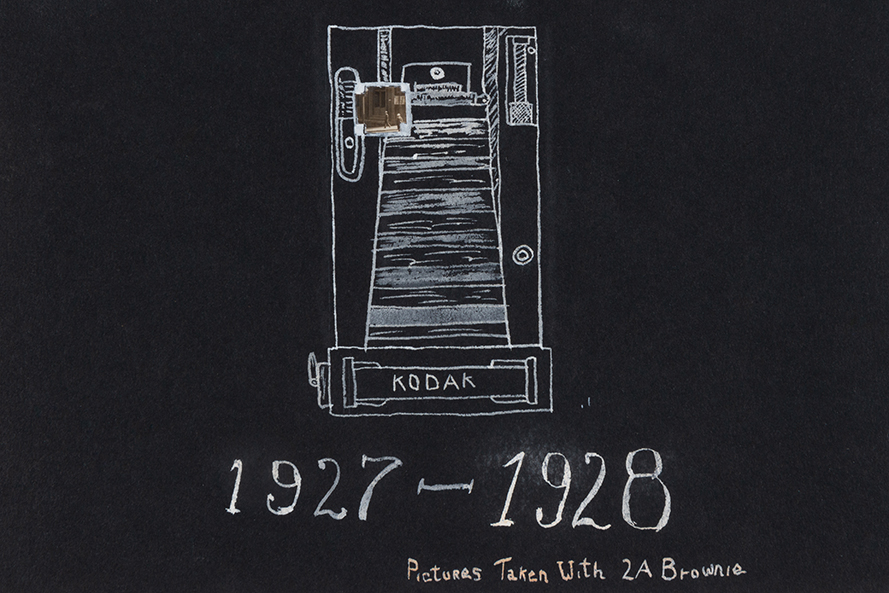 KODAK
1927-1928
Pictures Taken With 2A Brownie